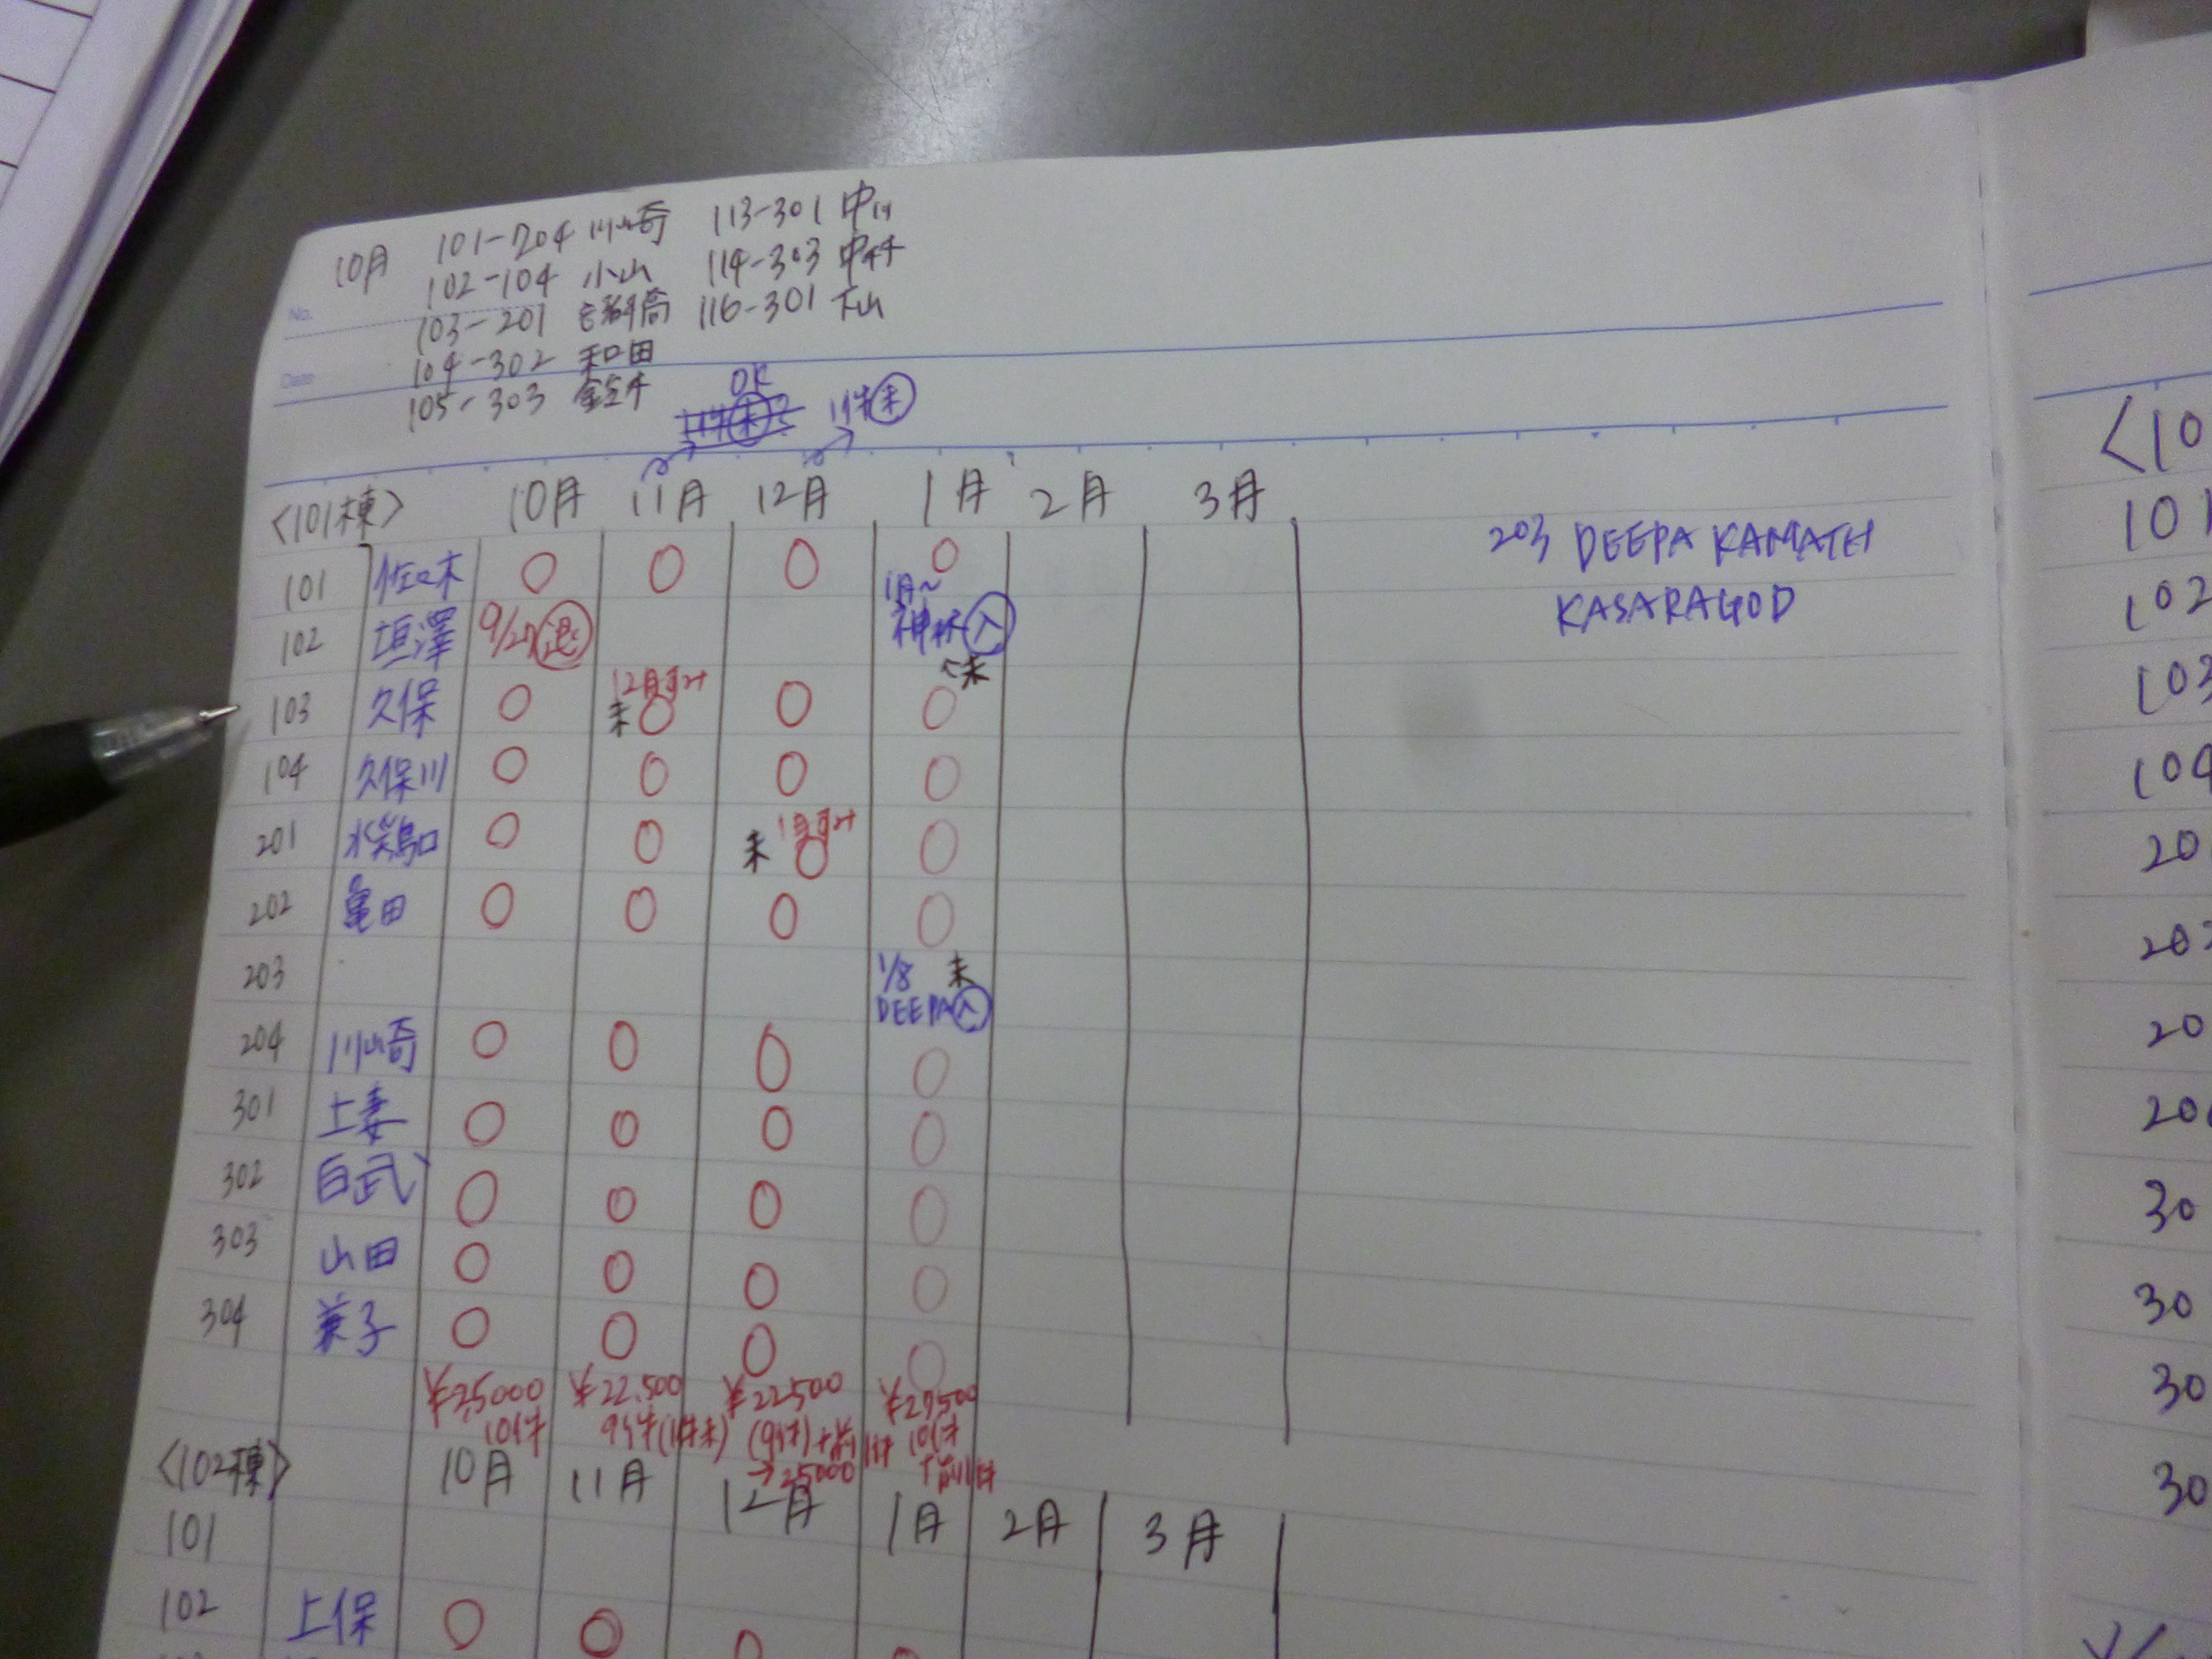 10月 101-204 川崎 113-301 中川
102-104 小山 114-303 中村
No. 103-201 齊髙 116-301 下山
Date 104-302 和田
105-303 鈴木
OK
11件未 11件未
<101棟> 10月 11月 12月 1月 2月 3月
101 佐々木 ○ ○ ○ ○
102 垣澤 9/27退 1月~
神林入
←未
103 久保 ○ 未 12月受付 ○ ○ ○
104 久保川 ○ ○ ○ ○
201 水鶏口 ○ ○ 未 1月受付 ○ ○
202 亀田 ○ ○ ○ ○
203 1/8 未
DEEPA入
204 川崎 ○ ○ ○ ○
301 上妻 ○ ○ ○ ○
302 白武 ○ ○ ○ ○
303 山田 ○ ○ ○ ○
304 兼子 ○ ○ ○ ○
¥25000 ¥22.500 ¥22500 ¥27500
10件 9件(1件未) (9件)+前1件 10件
→25000 +前1件
<102棟> 10月 11月 12月 1月 2月 3月
101
102 上保 ○ ○ ○
203 DEEPA KAMATH
KASARAGOD
<10
101
102
103
104
20
20
20
30
30
30
30